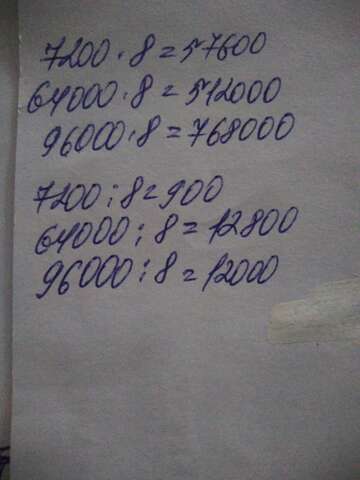 7200 · 8 = 57600
64000 · 8 = 512000
96000 · 8 = 768000
7200 : 8 = 900
64000 : 8 = 12800
96000 : 8 = 12000